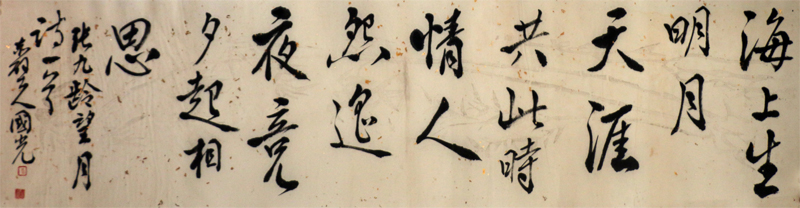 海上生
明月
天涯
共此時
情人
怨遥
夜竟
夕起相
思
張九齡望月
詩一首
人國光